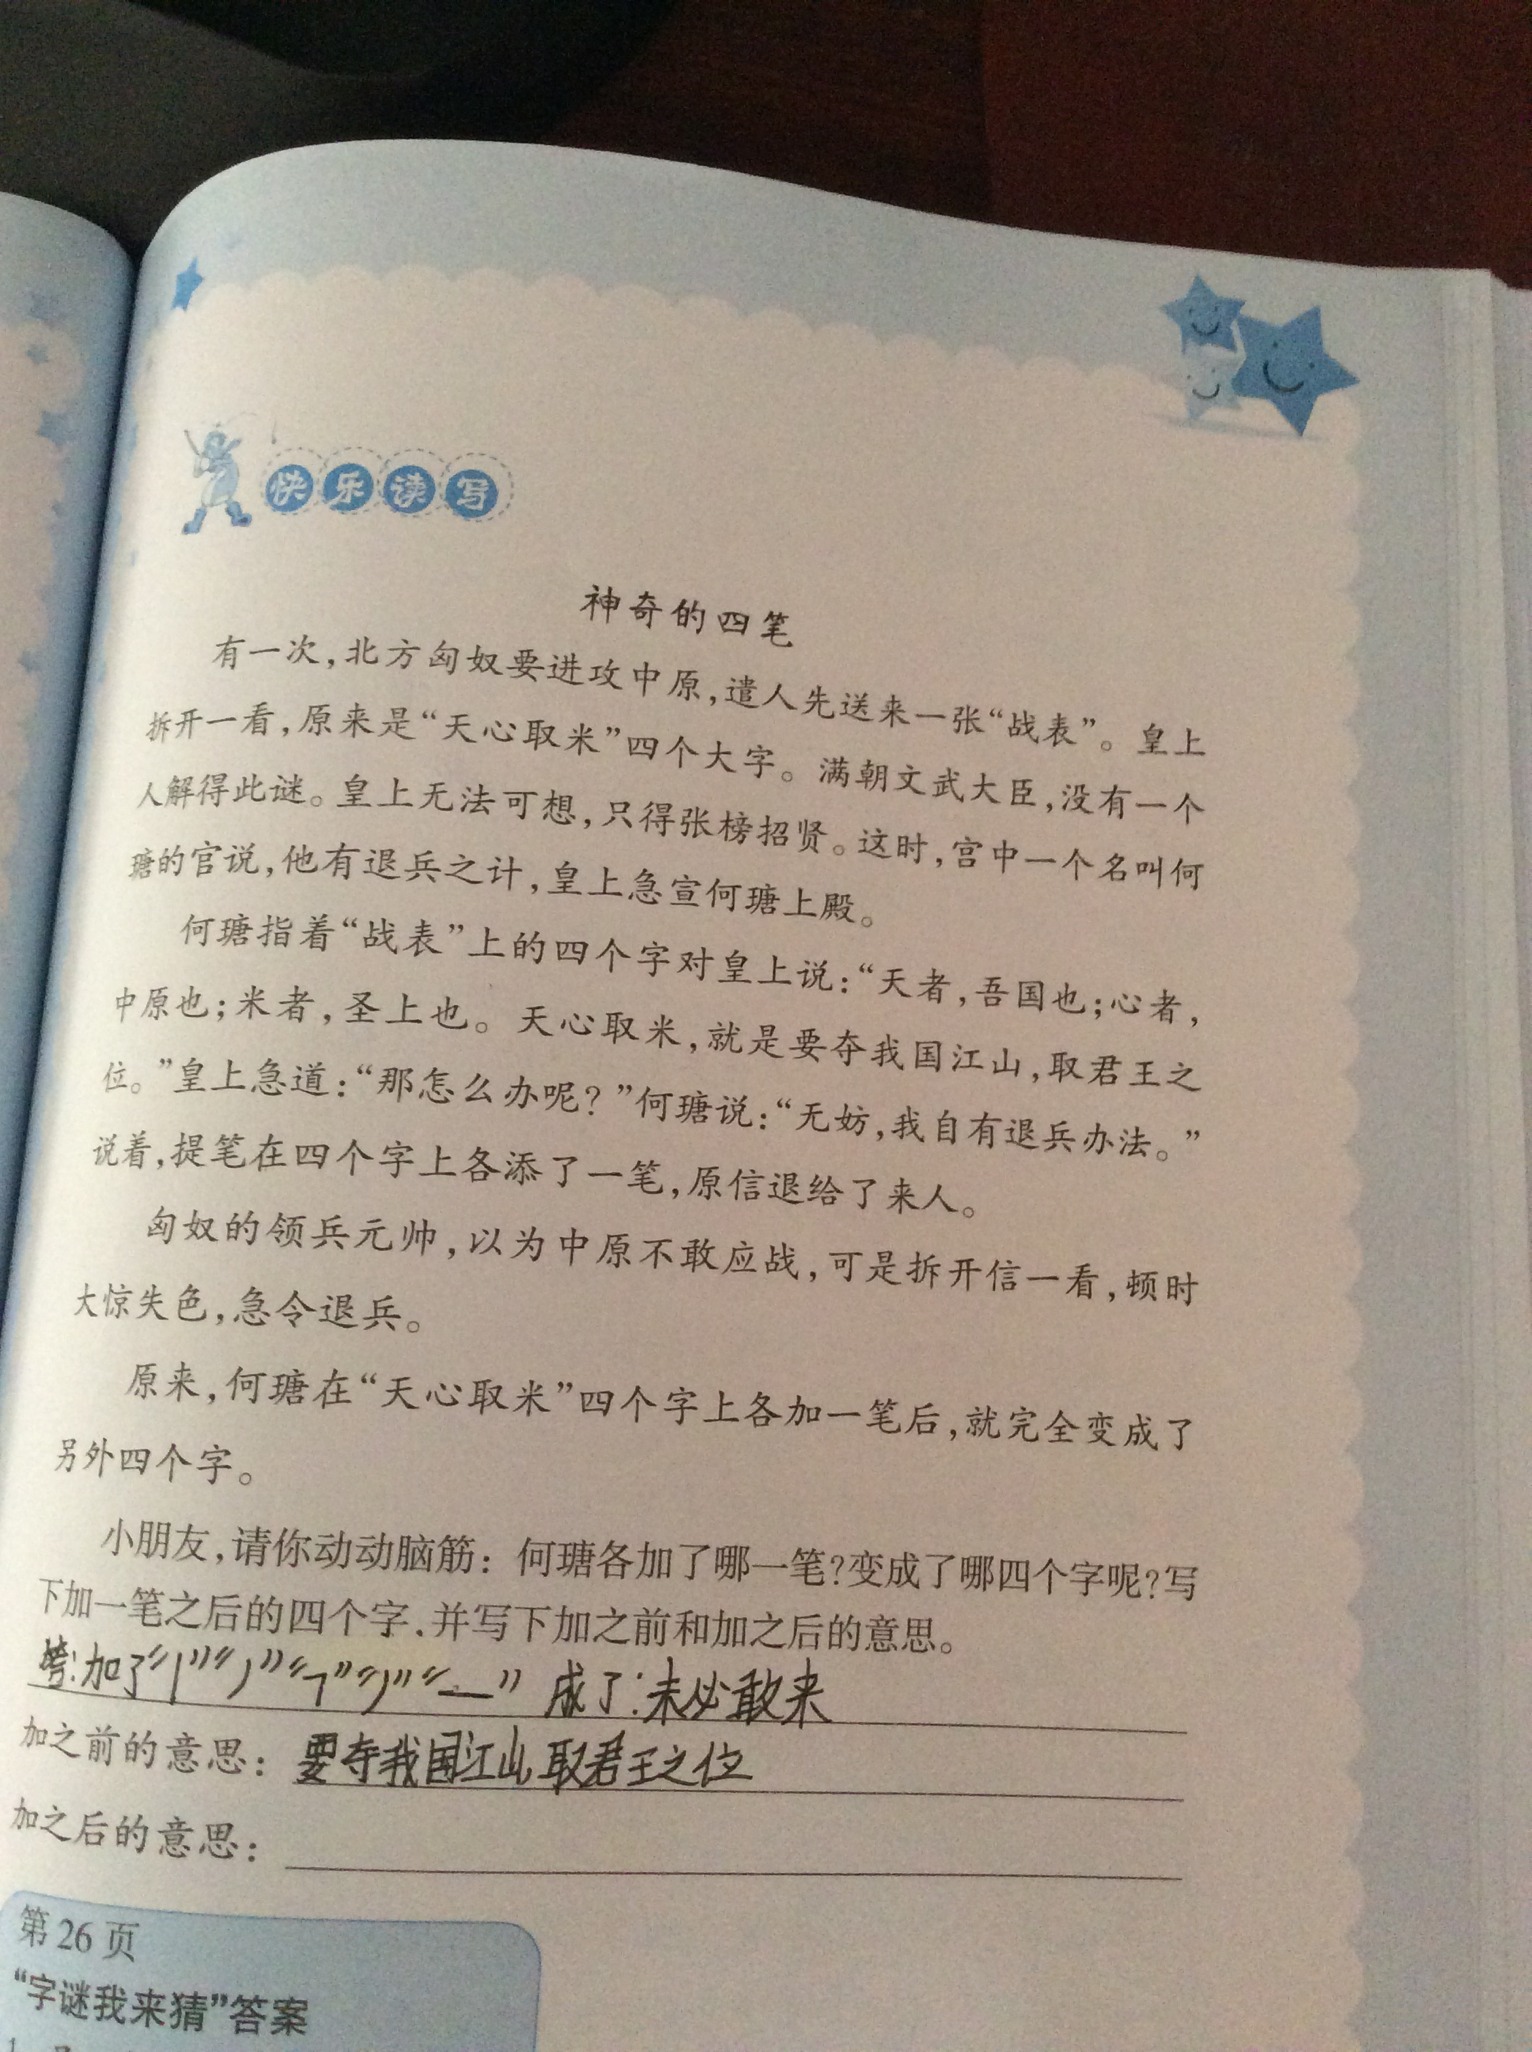 快乐读写
神奇的四笔
有一次，北方匈奴要进攻中原，遣人先送来一张“战表”。皇上
拆开一看，原来是“天心取米”四个大字。满朝文武大臣，没有一个
人解得此谜。皇上无法可想，只得张榜招贤。这时，宫中一个名叫何
瑭的官说，他有退兵之计，皇上急宣何瑭上殿。
何瑭指着“战表”上的四个字对皇上说：“天者，吾国也；心者，
中原也；米者，圣上也。天心取米，就是要夺我国江山，取君王之
位。”皇上急道：“那怎么办呢？”何瑭说：“无妨，我自有退兵办法。”
说着，提笔在四个字上各添了一笔，原信退给了来人。
匈奴的领兵元帅，以为中原不敢应战，可是拆开信一看，顿时
大惊失色，急令退兵。
原来，何瑭在“天心取米”四个字上各加一笔后，就完全变成了
另外四个字。
小朋友，请你动动脑筋：何瑭各加了哪一笔？变成了哪四个字呢？写
下加一笔之后的四个字，并写下加之前和加之后的意思。
答：加了“丨”“丿”“㇕”“丿”“一” 成了：未必敢来
加之前的意思：要夺我国江山，取君王之位
加之后的意思：
第26页
“字谜我来猜”答案